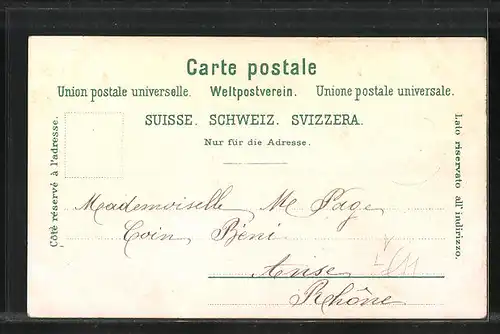 Carte postale
Union postale universelle. Weltpostverein. Unione postale universale.
SUISSE. SCHWEIZ. SVIZZERA.
Nur für die Adresse.
Côté réservé à l'adresse.
Lato riservato all' indirizzo.
Mademoiselle M Page
Coin Béni
Anse
Rhône